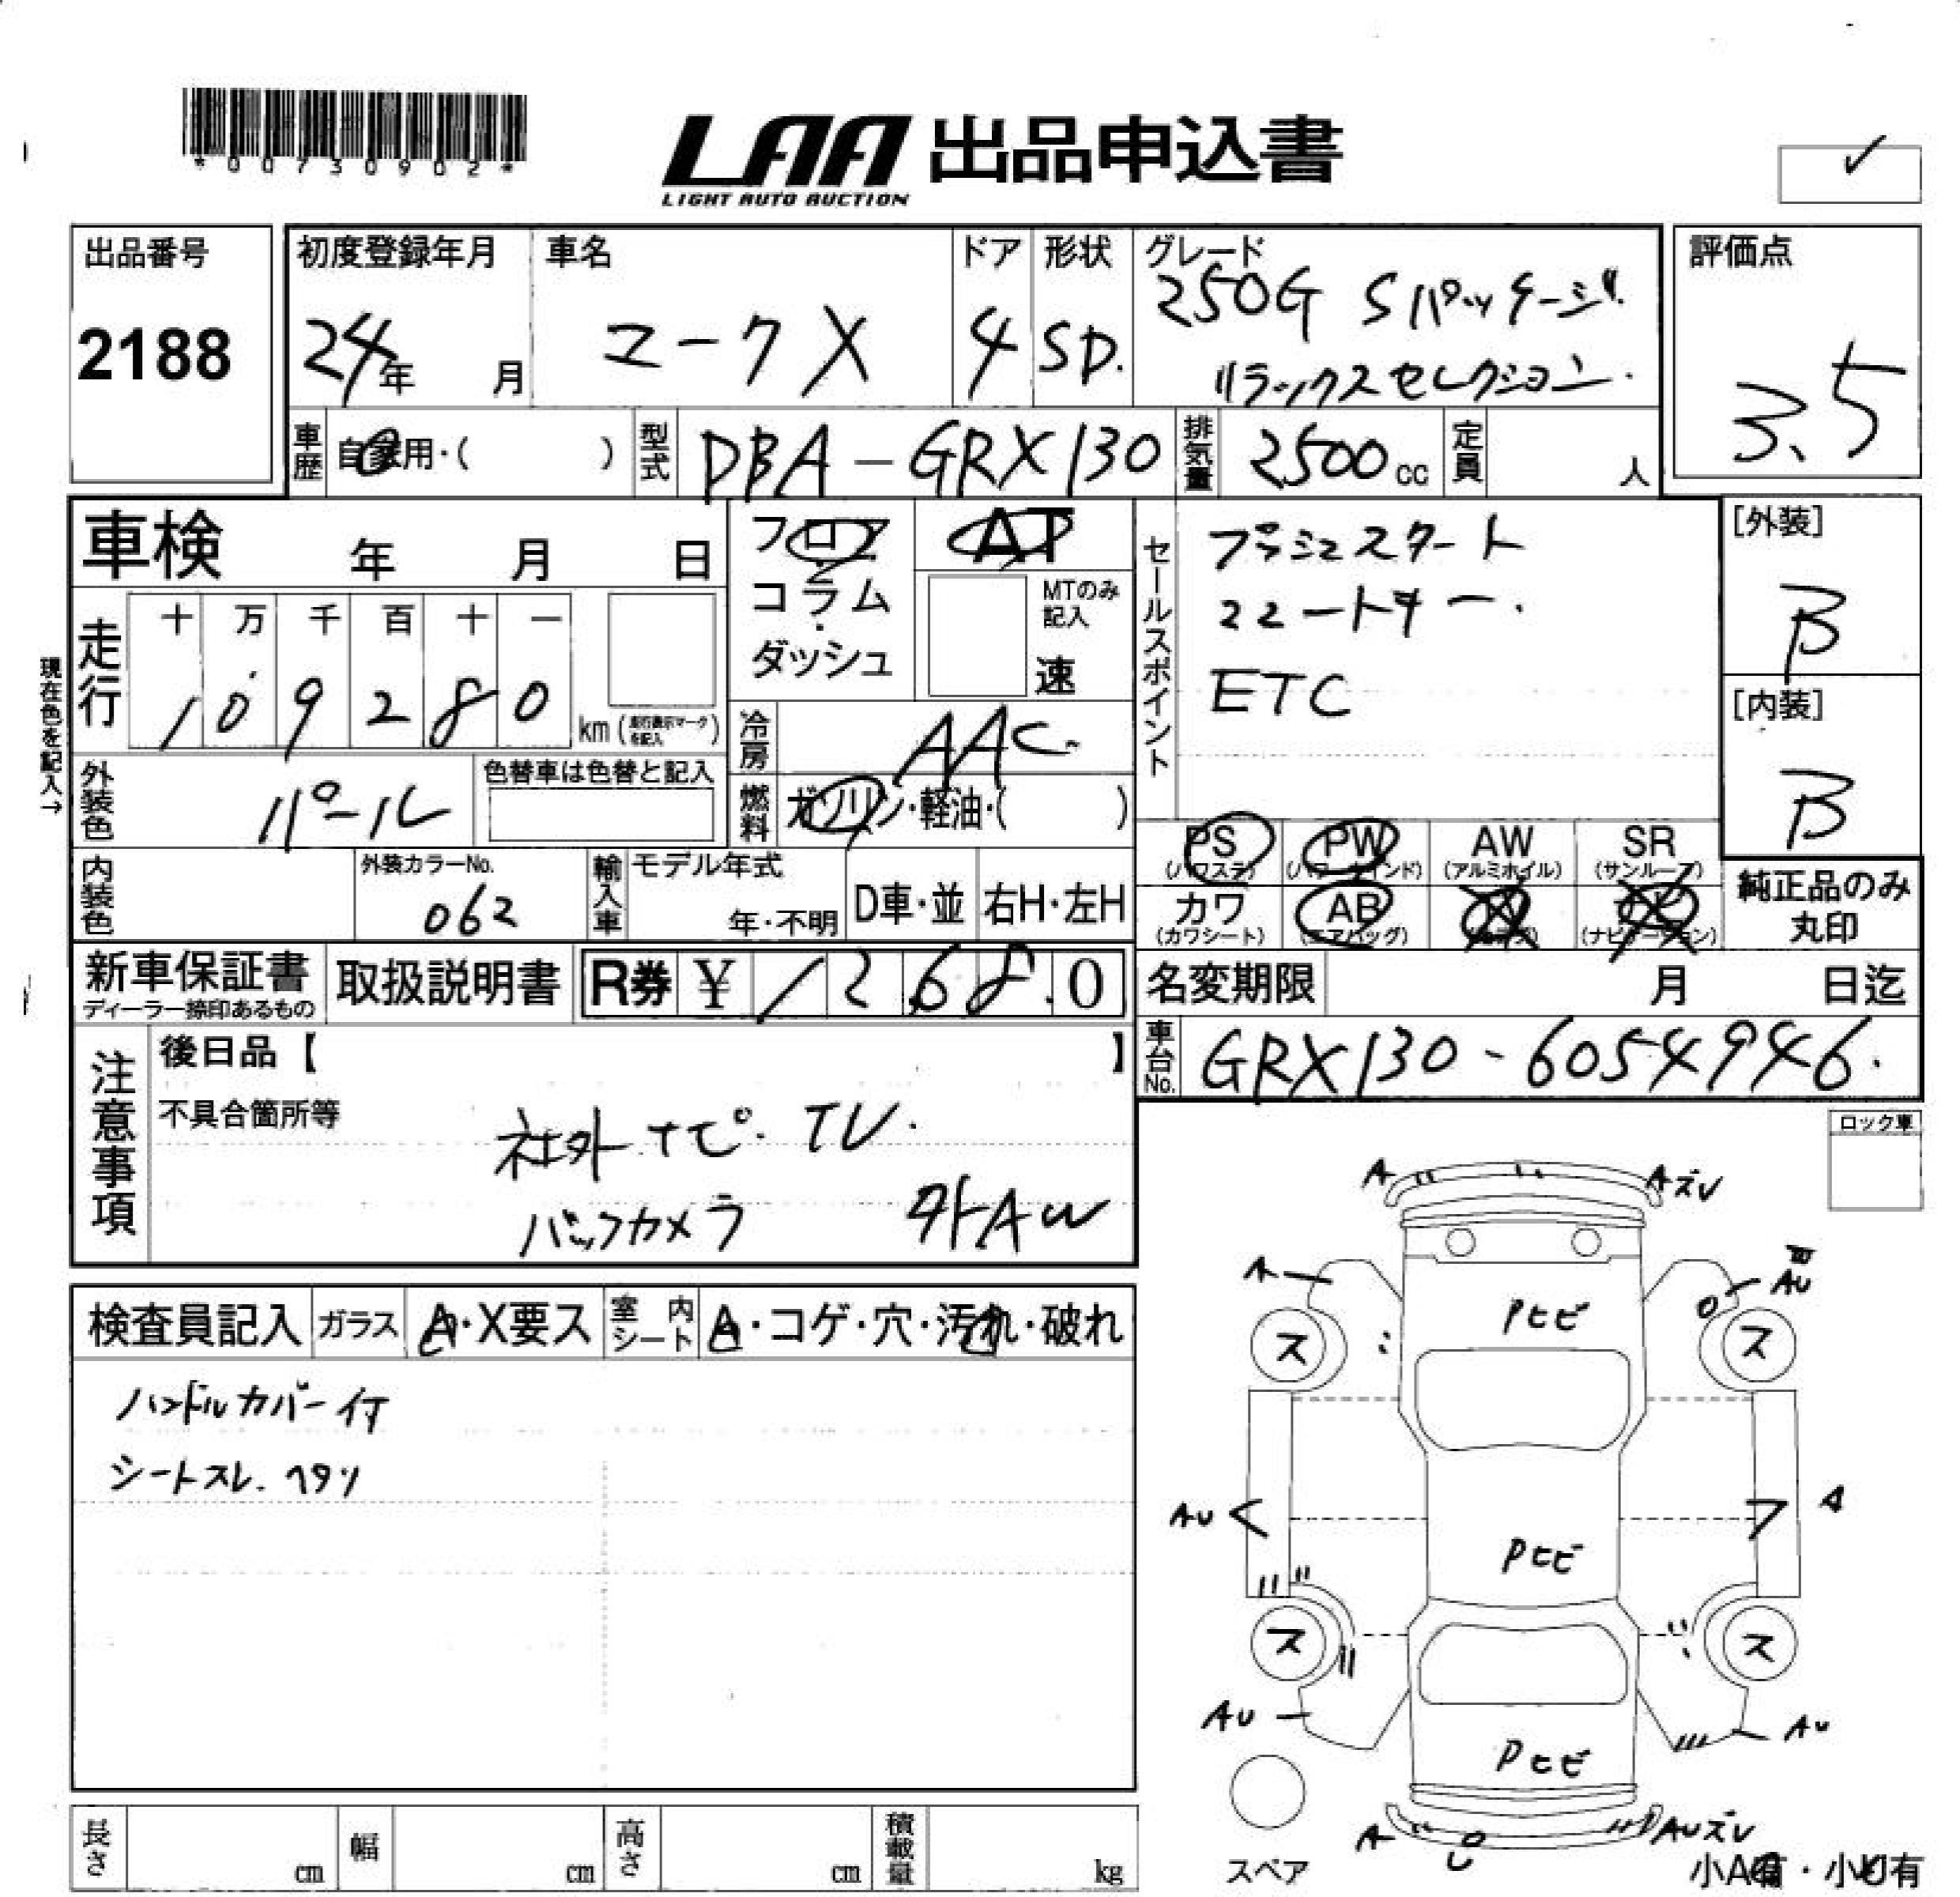 *00730902*
LAA 出品申込書
LIGHT AUTO AUCTION
出品番号
2188
初度登録年月
24年 月
車名
マークX
ドア
4
形状
SD.
グレード
250G Sパッケージ
リラックスセレクション.
評価点
3.5
車歴
自家用・( )
型式
DBA-GRX130
排気量
2500cc
定員
人
車検 年 月 日
フロア
コラム
・
ダッシュ
AT
MTのみ記入
速
セールスポイント
プッシュスタート
スマートキー.
ETC
[外装]
B
[内装]
B
現在色を記入→
走行
十 万 千 百 十 一
1 0 9 2 8 0
km(走行表示マークを記入)
冷房
AAC
外装色
パール
色替車は色替と記入
燃料
ガソリン・軽油・( )
PS
(パワステ)
PW
(パワーウインド)
AW
(アルミホイル)
SR
(サンルーフ)
内装色
外装カラーNo.
062
輸入車
モデル年式
年・不明
D車・並
右H・左H
カワ
(カワシート)
AB
(エアバッグ)
(ナビゲーション)
純正品のみ
丸印
新車保証書
ディーラー捺印あるもの
取扱説明書
R券 ¥ 12680
名変期限 月 日迄
車台No.
GRX130-6054946.
注意事項
後日品【 】
不具合箇所等
社外ナビ. TV.
バックカメラ 外AW
ロック車
検査員記入
ガラス
A・X要ス
室内シート
A・コゲ・穴・汚れ・破れ
ハンドルカバー付
シートスレ. ヘタリ
A
Aズレ
A
AU
Pヒビ
ス
ス
AU
A
Pヒビ
ス
ス
AU
AU
Pヒビ
A
AUズレ
スペア
小A有・小U有
長さ
cm
幅
cm
高さ
cm
積載量
kg